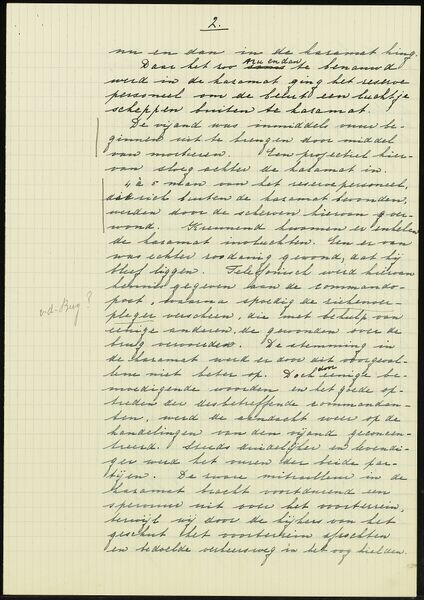 2.
nu en dan in de kazamat hing.
Daar het zoo nu en dan te benauwd
werd in de kazamat ging het reserve
personeel om de beurt een luchtje
scheppen buiten te kazamat.
De vijand was inmiddels vuur be-
ginnen uit te brengen door middel
van mortieren. Een projectiel hier-
van sloeg achter de kazamat in.
4 à 5 man van het reservepersoneel,
die zich buiten de kazamat bevonden,
werden door de scherven hiervan gewond.
Kreunend kwamen er enkelen
de kazamat invluchten. Een er van
was echter zoodanig gewond, dat hij
bleef liggen. Telefonisch werd hiervan
kennis gegeven aan de commando-
post, waarna spoedig de ziekenver-
v.d. Burg?
pleger verscheen, die met behulp van
eenige anderen de gewonden over de
brug vervoerde. De stemming in
de kazamat werd er door dit voorgeval-
lene niet beter op. Doch door eenige be-
moedigende woorden en het goede op-
treden der desbetreffende commandan-
ten, werd de aandacht weer op de
handelingen van den vijand geconcen-
treerd. Steeds duidelijker en levendi-
ger werd het vuren der beide par-
tijen. De zware mitrailleur in de
kazamat bracht voortdurend een
spervuur uit over het voorterrein,
terwijl wij door de kijkers van het
geschut het voorterrein afzochten
en bedoelde verkeersweg in het oog hielden.